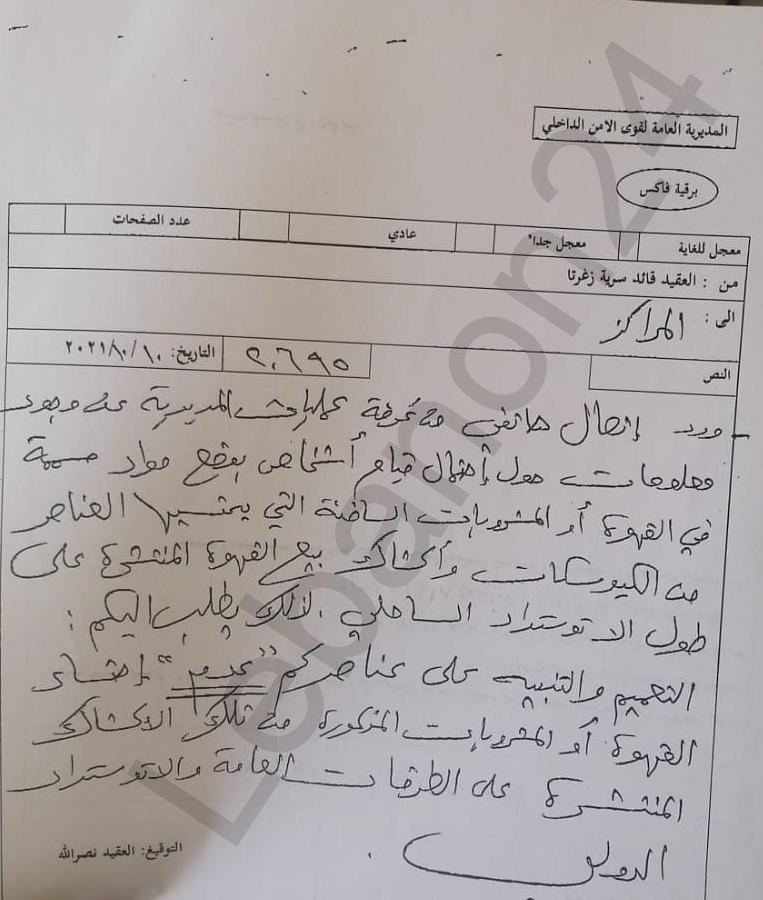 المديرية العامة لقوى الامن الداخلي
برقية فاكس
معجل للغاية معجل جدا" عادي عدد الصفحات
من : العقيد قائد سرية زغرتا
الى: المراكز
النص ٢٠٦٩٥ التاريخ: ٢٠٢١/١٠/١٠
- ورد إتصال هاتفي من غرفة عمليات المديرية عن وجود
معلومات حول إحتمال قيام أشخاص بوضع مواد سمية
في القهوة أو المشروبات الساخنة التي يحتسيها العناصر
من الكيوسكات وأكشاك بيع القهوة المنتشرة على
طول الاتوستراد الساحلي . لذلك يطلب اليكم :
التعميم والتنبيه على عناصركم "عدم" إحتساء
القهوة أو المشروبات المذكورة من تلك الأكشاك
المنتشرة على الطرقات العامة والاتوستراد
الدولي .
التوقيع: العقيد نصرالله
Lebanon24